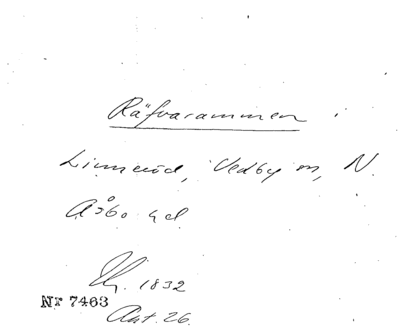 Räfvarammen
Linneröd, Vedby sn, N.
Åsbo hd.
1832
Nr 7463
Ant. 26.